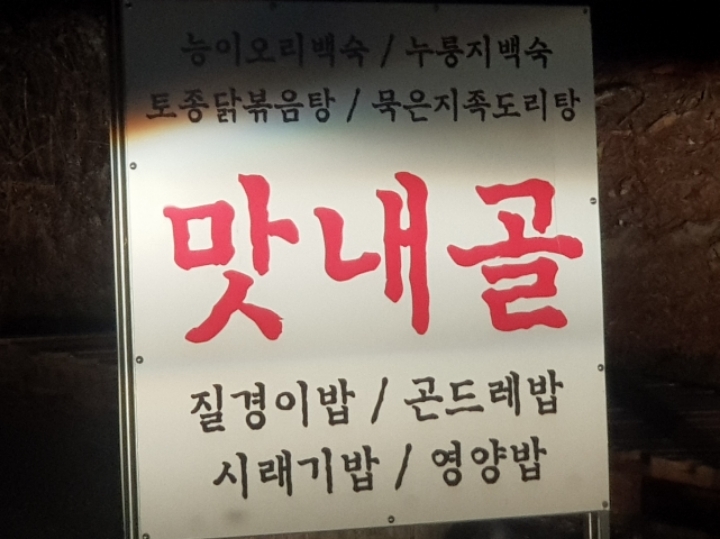 능이오리백숙 / 누룽지백숙
토종닭볶음탕 / 묵은지족도리탕
맛내골
질경이밥 / 곤드레밥
시래기밥 / 영양밥